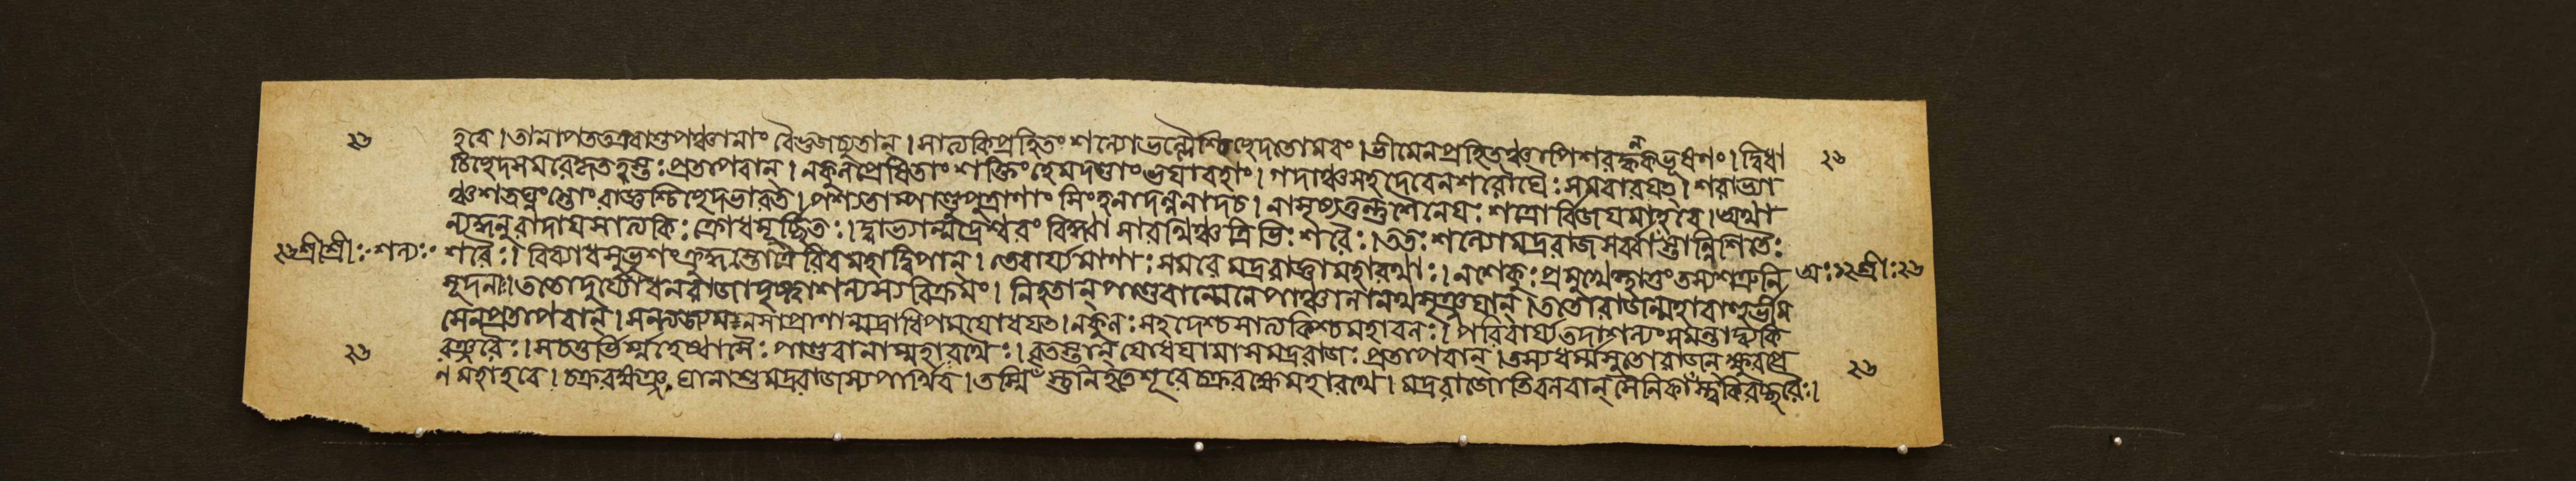 হবে। তানাপততএবাশুপঞ্চানাং বৈভুজচ্যুতান্। সাত্যকিপ্রহিতং শল্যোভল্লৈশ্চিচ্ছেদতোমরং। ভীমেনপ্রহিতঞ্চাপিশরঙ্কনকভূষণং। দ্বিধা
চিচ্ছেদসমরেকৃতহস্তঃপ্রতাপবান্। নকুলপ্রেষিতাং শক্তিং হেমদণ্ডাংভয়াবহাং। গদাঞ্চসহদেবেনশরৌঘৈঃসমবারয়ৎ। শরাভ্যা
ঞ্চশতঘ্নংন্তাংরাজ্ঞশ্চিচ্ছেদভারত। পশ্যতাম্পাণ্ডুপুত্রাণাং সিংহনাদন্ননাদচ। নামৃষ্যত্তন্তুশৈনেয়ঃশত্রোর্বিজয়মাহবে। অথা
ন্যদ্ধনুরাদায়সাত্যকিঃক্রোধমূর্চ্ছিতঃ। দ্বাভ্যাম্মদ্রেশ্বরং বিদ্ধ্বা সারথিঞ্চত্রিভিঃশরৈঃ। ততঃশল্যোমদ্ররাজসর্ব্বাংস্তান্নিশিতৈঃ
২৬শ্রীশ্রীঃশল্যঃ শরৈঃ। বিব্যাধসুভৃশংক্রুদ্ধস্তোত্রৈরিবমহাদ্বিপান্। তেবার্য্যমাণাঃসমরেমদ্ররাজ্ঞামহারথাঃ। নশেকুঃপ্রমুখেস্থাতুংতস্যশত্রুনি অঃ১২শ্রীঃ২৬
সূদনাঃ। ততোদুর্য্যোধনরাজাদৃষ্ট্বাশল্যস্যবিক্রমং। নিহতান্পাণ্ডবান্মেনেপাঞ্চালানথসৃঞ্জয়ান্। ততোরাজন্মহাবাহুর্ভীম
সেনপ্রতাপবান্। সন্ত্যজ্যমনসাপ্রাণান্মদ্রাধিপমযোধয়ত। নকুলঃসহদেশ্চসাত্যকিশ্চমহাবলঃ। পরিবার্য্যতদাশল্যংসমন্তাদ্ব্যকি
রঞ্ছরৈঃ। সচতুর্ভির্ম্মহেষ্বাসৈঃপাণ্ডবানাম্মহারথৈঃ। বৃতস্তান্যোধয়ামাসমদ্ররাজঃপ্রতাপবান্। তস্যধর্ম্মসুতোরাজন্ক্ষুরপ্রে
ণমহাহবে। চক্ররক্ষঞ্জঘানাশুমদ্ররাজস্যপার্থিব। তস্মিঁস্তুনিহতেশূরেচক্ররক্ষেমহারথে। মদ্ররাজোতিবলবান্সৈনিকাঁস্ত্ববকিরচ্ছরৈঃ।
২৬
২৬
২৬
২৬